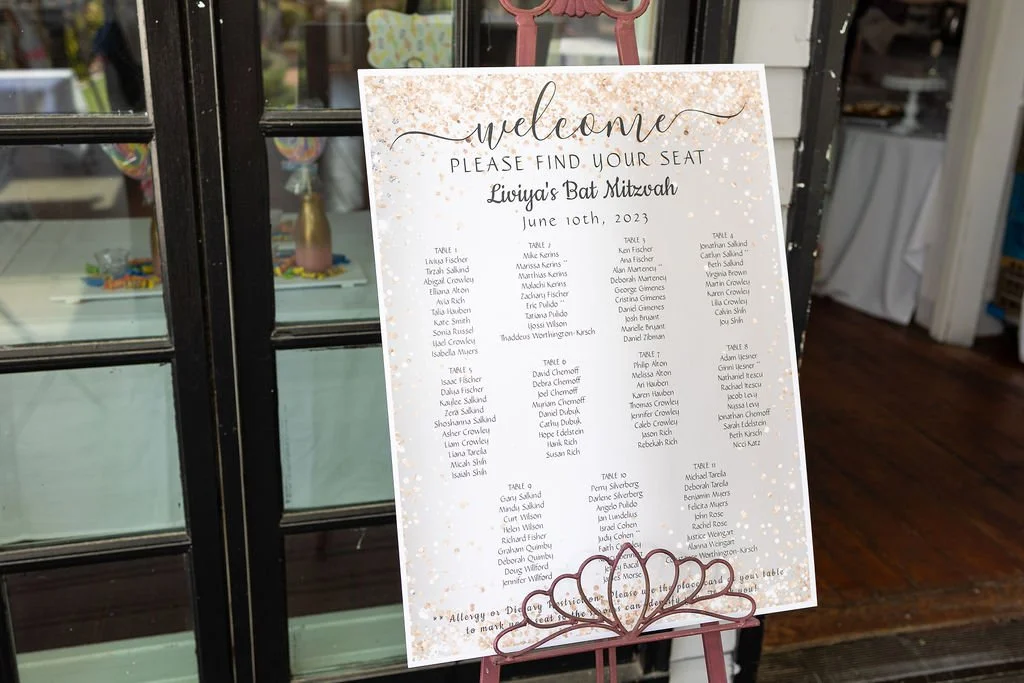 welcome
PLEASE FIND YOUR SEAT
Liviya's Bat Mitzvah
June 10th, 2023
TABLE 1
Liviya Fischer
Tirzah Salkind
Abigail Crowley
Elliana Alton
Avia Rich
Talia Hauben
Kate Smith
Sonia Russel
Yael Crowley
Isabella Myers
TABLE 2
Mike Kerins
Marissa Kerins **
Matthias Kerins
Malachi Kerins
Zachary Fischer
Eric Pulido **
Tatiana Pulido
Yossi Wilson
Thaddeus Worthington-Kirsch
TABLE 3
Ken Fischer
Ana Fischer
Alan Marteney **
Deborah Marteney
George Gimenes
Cristina Gimenes
Daniel Gimenes
Josh Bryant
Marielle Bryant
Daniel Zibman
TABLE 4
Jonathan Salkind
Caitlyn Salkind **
Beth Salkind
Virginia Brown
Martin Crowley
Karen Crowley
Lilia Crowley
Calvin Shih
Joy Shih
TABLE 5
Isaac Fischer
Dalya Fischer
Kaylee Salkind
Zera Salkind
Shoshanna Salkind
Asher Crowley
Liam Crowley
Liana Tarella
Micah Shih
Isaiah Shih
TABLE 6
David Chemoff
Debra Chemoff
Jod Chemoff
Myriam Chemoff
Daniel Dubyk
Cathy Dubyk
Hope Edelstein
Hank Rich
Susan Rich
TABLE 7
Philip Alton
Melissa Alton
Ari Hauben
Karen Hauben
Thomas Crowley
Jennifer Crowley
Caleb Crowley
Jason Rich
Rebekah Rich
TABLE 8
Adam Yesner
Ginni Yesner **
Nathaniel Itescu
Rachael Itescu
Jacob Levy
Nyssa Levy
Jonathan Chemoff
Sarah Edelstein
Beth Kirsch
Nicci Katz
TABLE 9
Gary Salkind
Mindy Salkind
Curt Wilson
Helen Wilson
Richard Fisher
Graham Quimby
Deborah Quimby
Doug Willford
Jennifer Willford
TABLE 10
Perry Silverberg
Darlene Silverberg
Angelo Pulido
Jan Lundelius
Israel Cohen
Judy Cohen **
Faith Crowley
Morse
TABLE 11
Michael Tarella
Deborah Tarella
Benjamin Myers
Felicita Myers
John Rose
Rachel Rose
Justice Weingart
Alanna Weingart
Worthington-Kirsch
** Allergy or Dietary Restriction. Please use the place card at your table
to mark your seat so the can you!